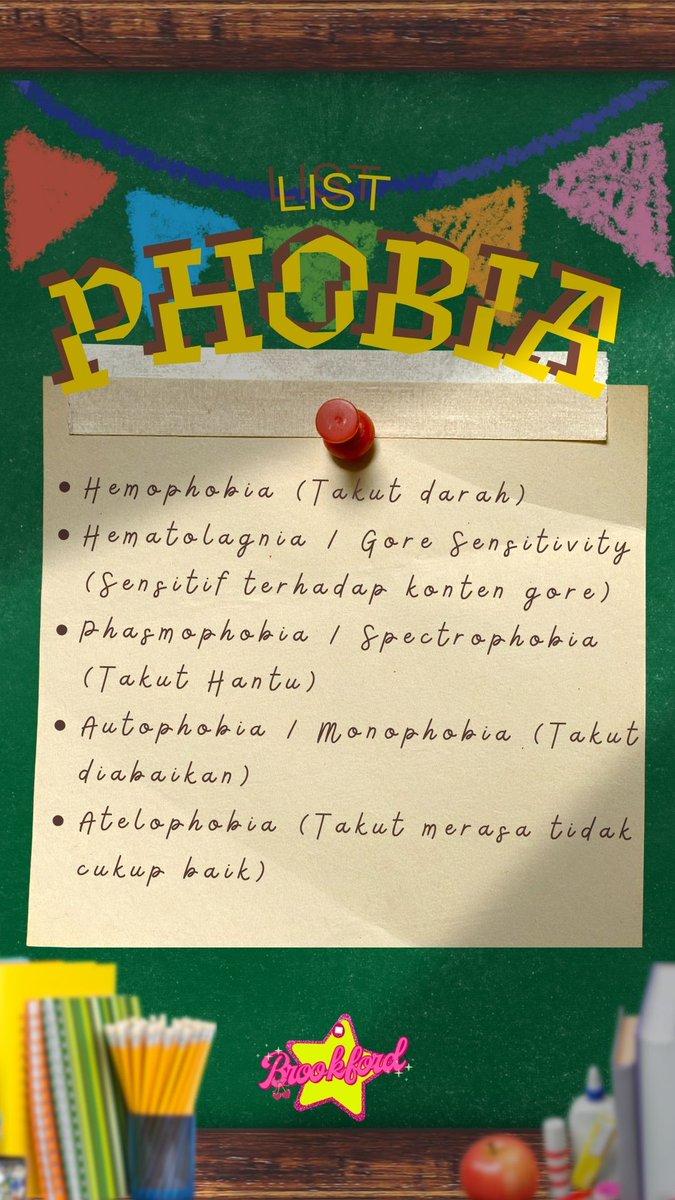 LIST
PHOBIA
• Hemophobia (Takut darah)
• Hematolagnia / Gore Sensitivity
(Sensitif terhadap konten gore)
• Phasmophobia / Spectrophobia
(Takut Hantu)
• Autophobia / Monophobia (Takut
diabaikan)
• Atelophobia (Takut merasa tidak
cukup baik)
Brookford